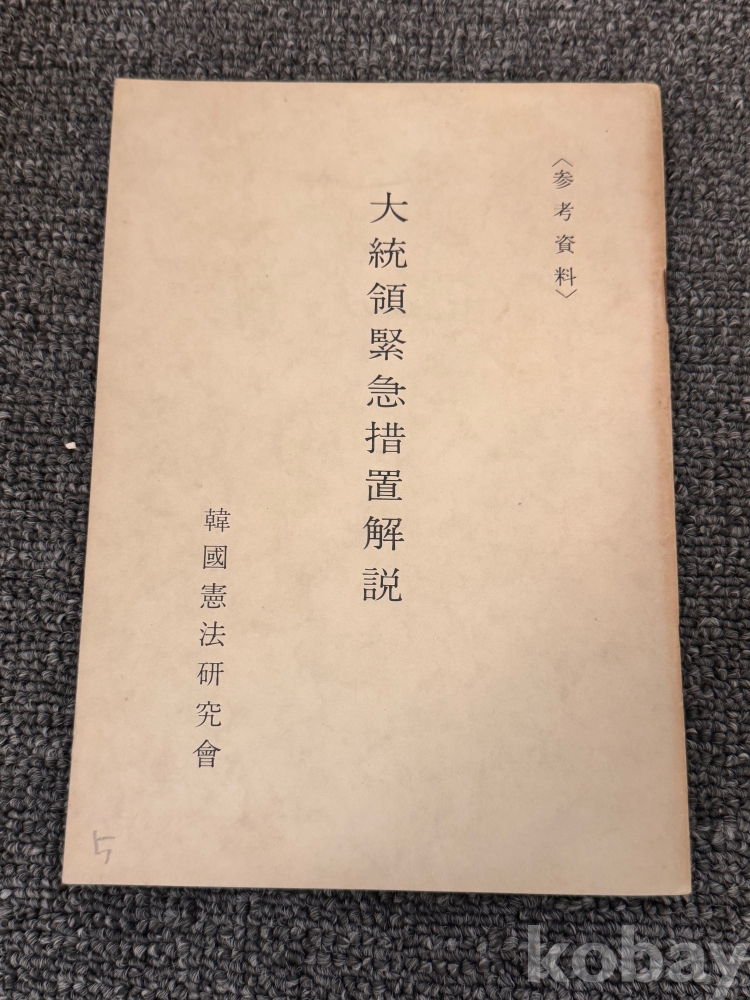 〈参考資料〉
大統領緊急措置解説
韓國憲法研究會
5
kobay